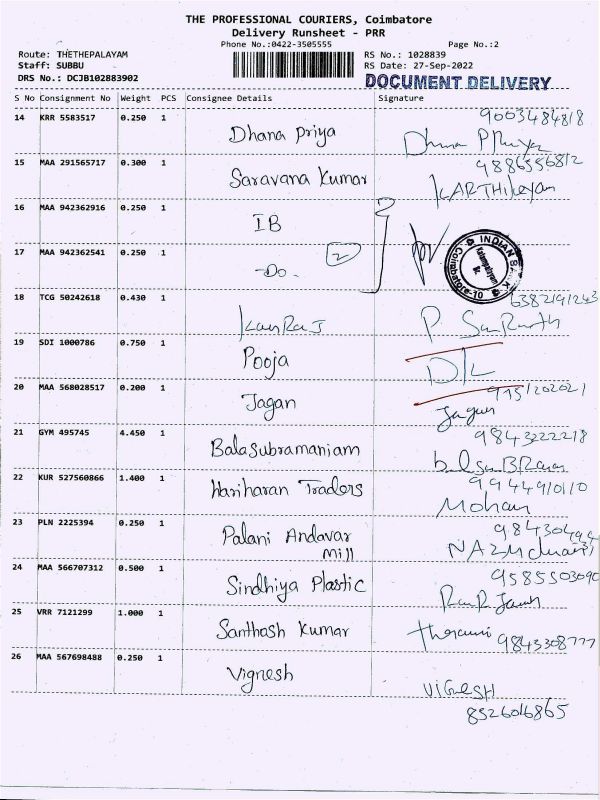 THE PROFESSIONAL COURIERS, Coimbatore
Delivery Runsheet - PRR
Phone No.:0422-3505555 Page No.:2
Route: THETHEPALAYAM RS No.: 1028839
Staff: SUBBU RS Date: 27-Sep-2022
DRS No.: DCJB102883902 DOCUMENT DELIVERY
S No Consignment No Weight PCS Consignee Details Signature
14 KRR 5583517 0.250 1 Dhana Priya 9003484818
15 MAA 291565717 0.300 1 Saravana Kumar 9886556812 KARTHikeyan
16 MAA 942362916 0.250 1 IB
17 MAA 942362541 0.250 1 -Do- 2
INDIAN BANK
Coimbatore-10
18 TCG 50242618 0.430 1 6382191243
19 SDI 1000786 0.750 1 Pooja D/L
20 MAA 568028517 0.200 1 Jagan Jagan
21 GYM 495745 4.450 1 Balasubramaniam 9843222218
22 KUR 527560866 1.400 1 Hariharan Traders 9944910110 Mohan
23 PLN 2225394 0.250 1 Palani Andavar Mill
24 MAA 566707312 0.500 1 Sindhiya Plastic 9585503090
25 VRR 7121299 1.000 1 Santhosh Kumar 9843308777
26 MAA 567698488 0.250 1 Vignesh VIGNESH
8526016865